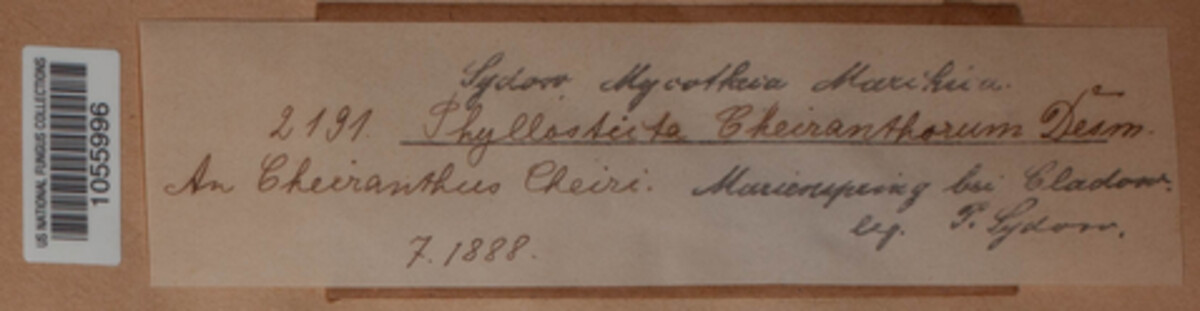 US NATIONAL FUNGUS COLLECTIONS
1055996
Sydow Mycotheca Marchica.
2191. Phyllosticta Cheiranthorum Desm.
An Cheiranthus Cheiri. Marienspring bei Cladow.
leg. P. Sydow.
7. 1888.